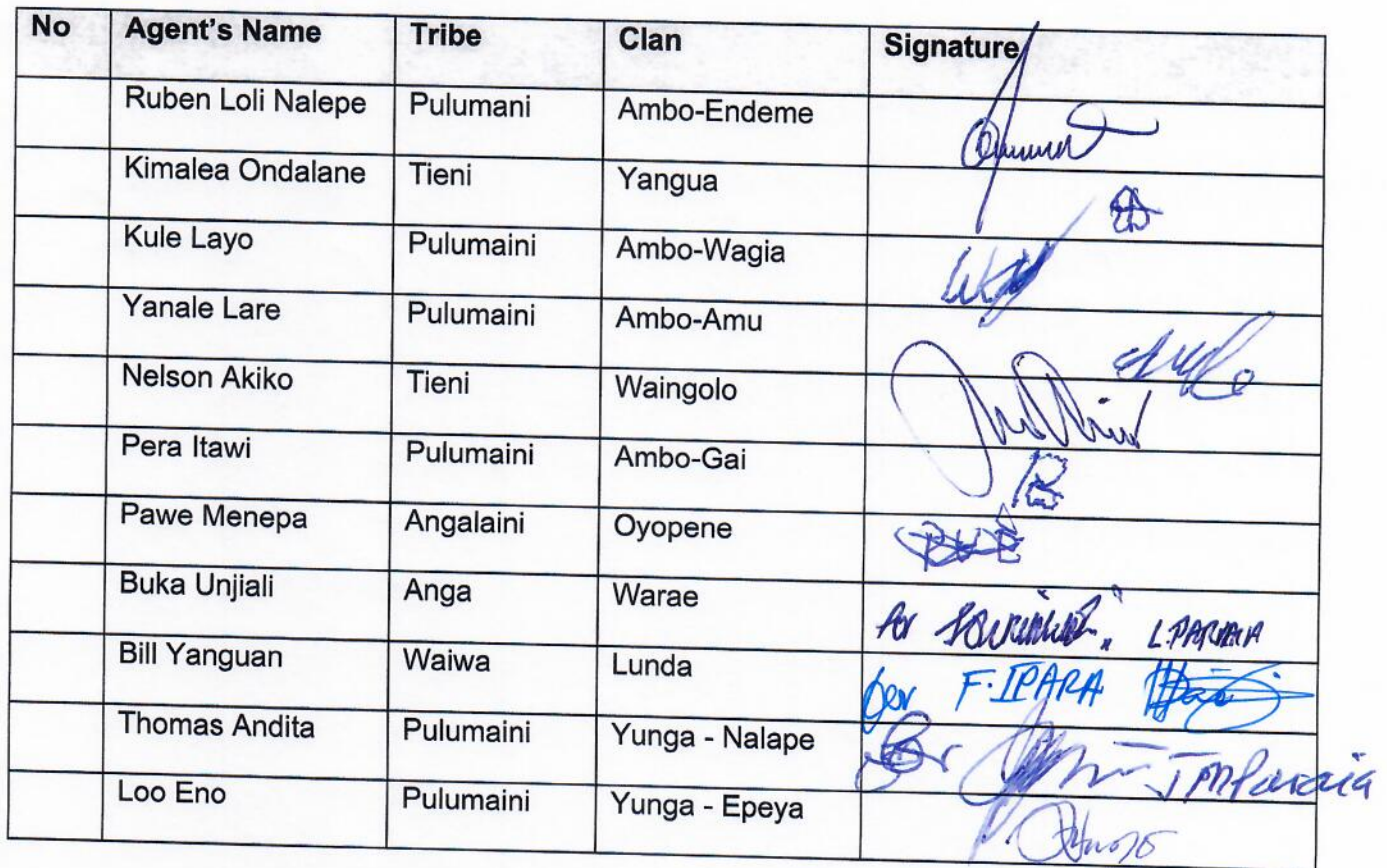 No Agent's Name Tribe Clan Signature
Ruben Loli Nalepe Pulumani Ambo-Endeme
Kimalea Ondalane Tieni Yangua
Kule Layo Pulumaini Ambo-Wagia
Yanale Lare Pulumaini Ambo-Amu
Nelson Akiko Tieni Waingolo
Pera Itawi Pulumaini Ambo-Gai
Pawe Menepa Angalaini Oyopene
Buka Unjiali Anga Warae for
Bill Yanguan Waiwa Lunda for F. IPARA
Thomas Andita Pulumaini Yunga - Nalape for
Loo Eno Pulumaini Yunga - Epeya